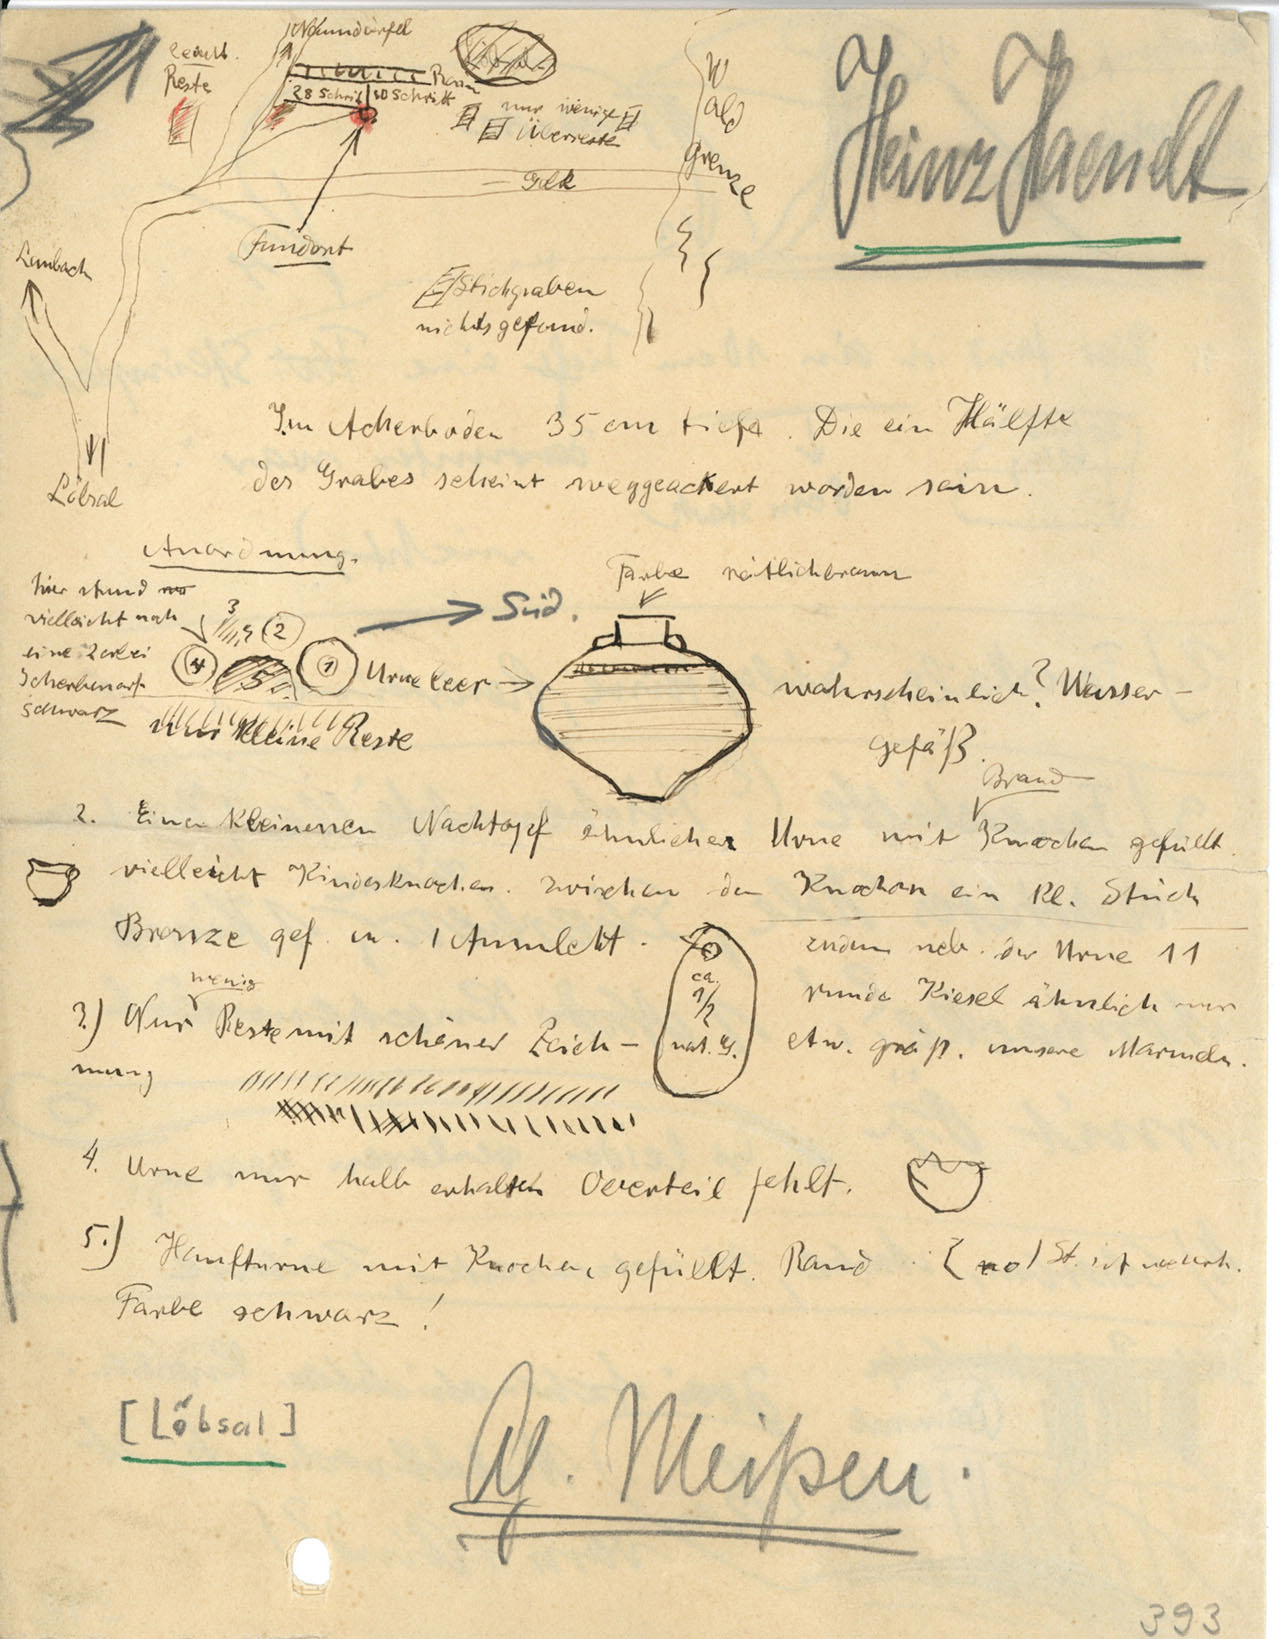 Naundörfel
Reste
28 Schritt 10 Schritt
nur wenige
Überreste
Wald
grenze
Heinz Haendt
Fundort
Stichgraben
nichts gefund.
Löbsal
Im Ackerboden 35 cm tiefe. Die ein Hälfte
des Grabes scheint weggeackert worden sein.
Anordnung.
hier stand
vielleicht noch
eine
schwarz
3
2
4
5
1
Süd.
Urne leer
nur kleine Reste
Farbe rötlichbraun
wahrscheinlich? Wasser-
gefäß.
Brand
2. Einer kleineren Nachtopf ähnlicher Urne mit Knochen gefüllt.
vielleicht Kinderknochen. zwischen den Knochen ein kl. Stück
Bronze gef. u. 1 Amulett.
ca.
1/2
nat. G.
zudem neb. der Urne 11
runde Kiesel ähnlich nur
etw. größ. unsere Murmeln.
wenig
3.) Nur Reste mit schöner Zeich-
nung
4. Urne nur halb erhalten Oberteil fehlt.
5.) Hauptturne mit Knochen gefüllt. Rand
Farbe schwarz!
[Löbsal]
Meißen.
393